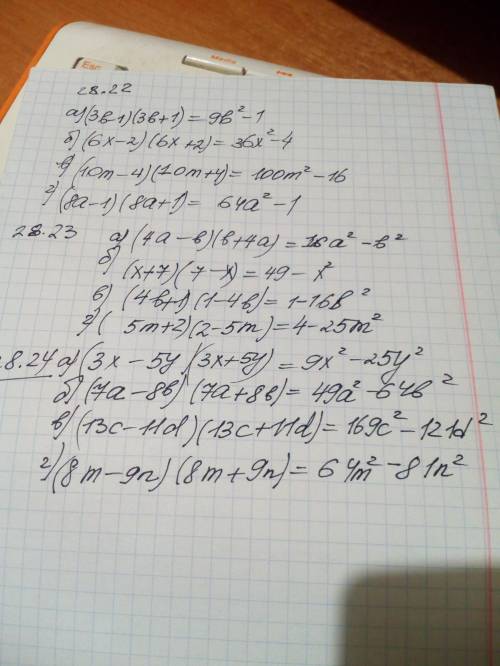 Esc
Media
28.22
а) (3в-1)(3в+1)=9в²-1
б) (6x-2)(6x+2)=36x²-4
в) (10m-4)(10m+4)=100m²-16
г) (8a-1)(8a+1)= 64a²-1
28.23 а) (4a-в)(в+4a)=16a²-в²
б) (x+7)(7-x)=49-x²
в) (4в+1)(1-4в)=1-16в²
г) ( 5m+2)(2-5m)=4-25m²
8.24 а) (3x-5y)(3x+5y)=9x²-25y²
б) (7a-8в)(7a+8в)=49a²-64в²
в) (13c-11d)(13c+11d)=169c²-121d²
г) (8m-9n)(8m+9n)=64m²-81n²